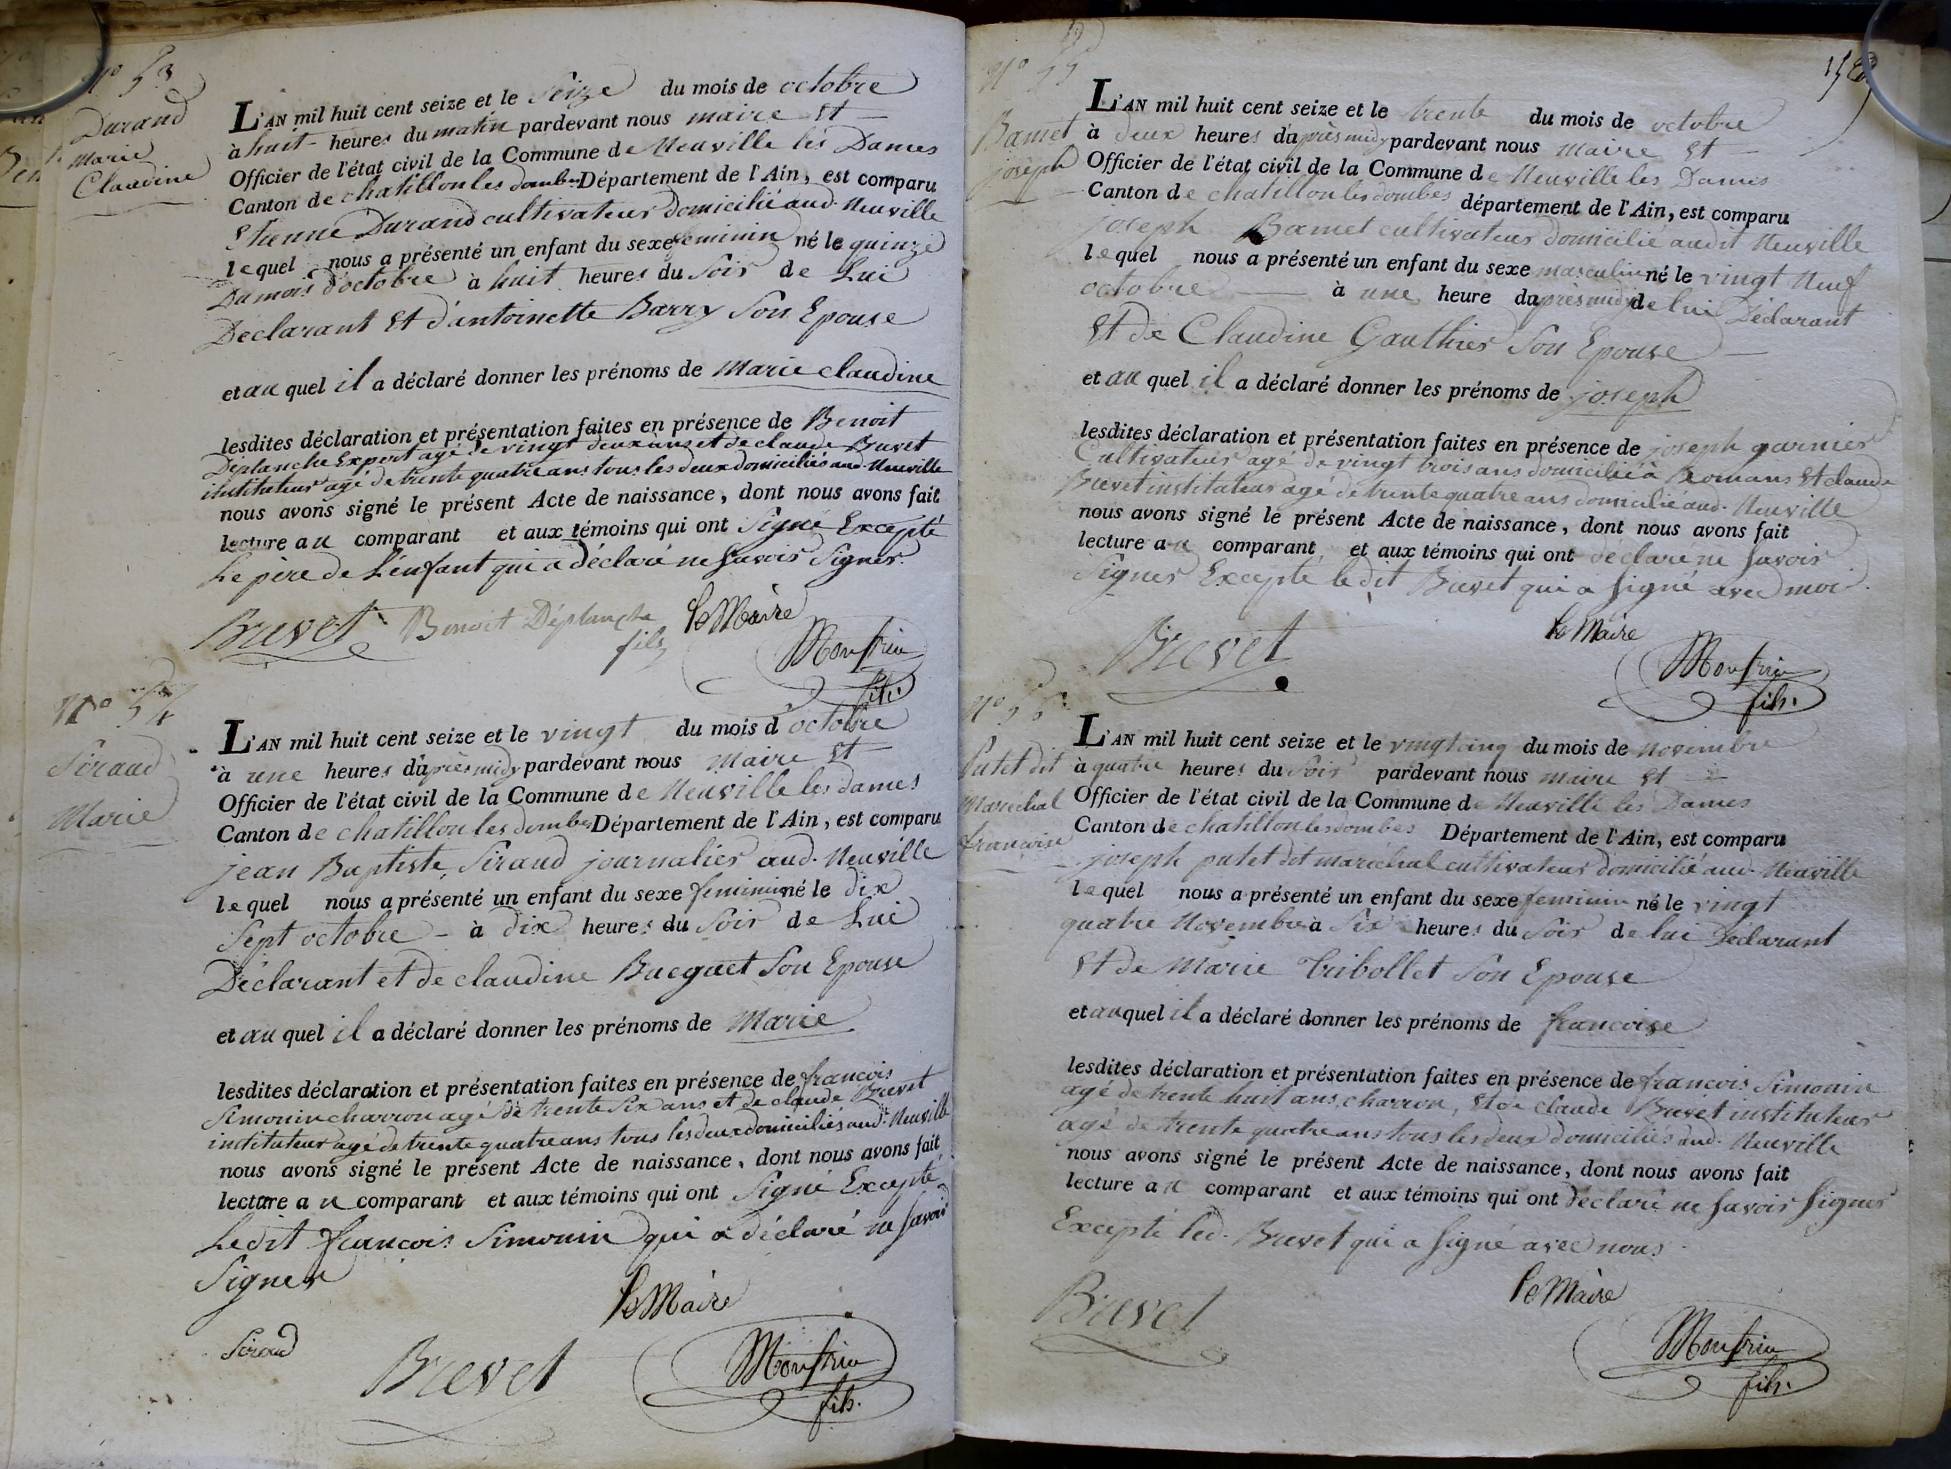 N° 53
Durand
Marie
Claudine
L'AN mil huit cent seize et le Seize du mois de octobre
à huit heures du matin pardevant nous maire Et
Officier de l'état civil de la Commune de Neuville les Dames
Canton de chatillon les dombes Département de l'Ain, est comparu
Etienne Durand cultivateur domicilié aud. Neuville
lequel nous a présenté un enfant du sexe feminin né le quinze
Du mois d'octobre à huit heures du Soir de Lui
Déclarant Et d'antoinette Barry Son Epouse
et au quel il a déclaré donner les prénoms de Marie claudine
lesdites déclaration et présentation faites en présence de Benoit
Déplanche Expert agé de vingt deux ans et de claude Brevet
institituteur agé de trente quatre ans tous les deux domiciliés aud. Neuville
nous avons signé le présent Acte de naissance, dont nous avons fait
lecture au comparant et aux témoins qui ont Signé Excepté
Le père de L'enfant qui a déclaré ne Savoir Signer.
Brevet Benoit Déplanche fils le Maire
Monfrin
fils.
N° 54
Siraud
Marie
L'AN mil huit cent seize et le vingt du mois d'octobre
à une heures du après midy pardevant nous maire Et
Officier de l'état civil de la Commune de Neuville les dames
Canton de chatillon les dombes Département de l'Ain, est comparu
jean Baptiste Siraud journalier aud. Neuville
lequel nous a présenté un enfant du sexe feminin né le dix
Sept octobre à dix heures du Soir de Lui
Déclarant et de claudine Bacquet Son Epouse
et au quel il a déclaré donner les prénoms de Marie
lesdites déclaration et présentation faites en présence de francois
Simonin charron agé de trente Six ans et de claude Brevet
instituteur agé de trente quatre ans tous les deux domiciliés aud. Neuville
nous avons signé le présent Acte de naissance, dont nous avons fait
lecture au comparant et aux témoins qui ont Signé Excepté
Ledit francois Simonin qui a déclaré ne Savoir
Signer
le Maire
Siraud Brevet Monfrin
fils.
158
N° 55
Bamet
joseph
L'AN mil huit cent seize et le trente du mois de octobre
à deux heures du après midy pardevant nous maire Et
Officier de l'état civil de la Commune de Neuville les Dames
Canton de chatillon les dombes département de l'Ain, est comparu
joseph Bamet cultivateur domicilié audit Neuville
lequel nous a présenté un enfant du sexe masculin né le vingt Neuf
octobre à une heure du après midy de lui Déclarant
Et de Claudine Gauthier Son Epouse
et au quel il a déclaré donner les prénoms de joseph
lesdites déclaration et présentation faites en présence de joseph garnier
Cultivateur agé de vingt trois ans domicilié à Romans Et claude
Brevet instituteur agé de trente quatre ans domicilié aud. Neuville
nous avons signé le présent Acte de naissance, dont nous avons fait
lecture au comparant et aux témoins qui ont déclaré ne Savoir
Signer Excepté ledit Brevet qui a Signé avec moi.
le Maire
Brevet Monfrin
fils.
N° 56
Putet dit
Maréchal
francoise
L'AN mil huit cent seize et le vingt cinq du mois de Novembre
à quatre heures du Soir pardevant nous maire Et
Officier de l'état civil de la Commune de Neuville les Dames
Canton de chatillon les dombes Département de l'Ain, est comparu
joseph putet dit maréchal cultivateur domicilié aud. Neuville
lequel nous a présenté un enfant du sexe feminin né le vingt
quatre Novembre à Six heures du Soir de lui Déclarant
Et de Marie Tribollet Son Epouse
et auquel il a déclaré donner les prénoms de francoise
lesdites déclaration et présentation faites en présence de francois Simonin
agé de trente huit ans, charron, Et de claude Brevet instituteur
agé de trente quatre ans tous les deux domiciliés aud. Neuville
nous avons signé le présent Acte de naissance, dont nous avons fait
lecture au comparant et aux témoins qui ont déclaré ne Savoir Signer
Excepté led. Brevet qui a Signé avec nous.
le Maire
Brevet Monfrin
fils.